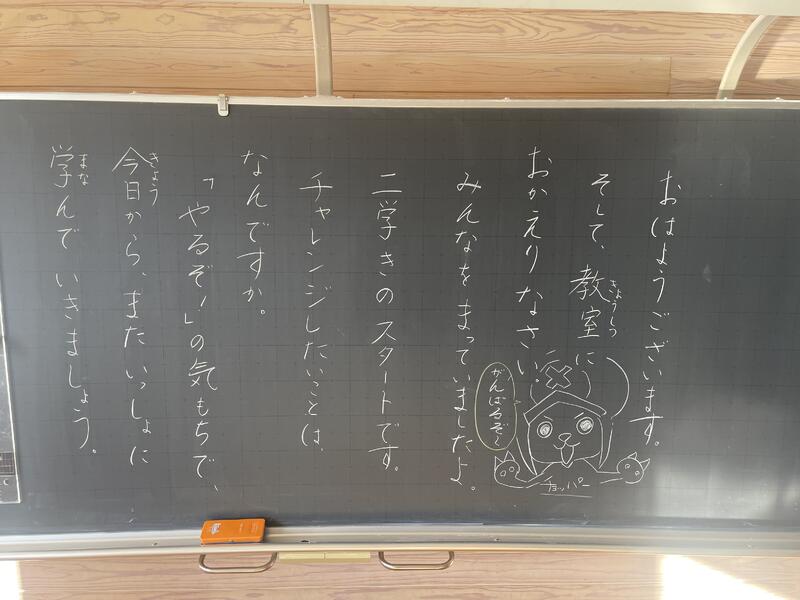 おはようございます。
そして、教室に
きょうしつ
おかえりなさい。
みんなをまっていましたよ。
二学きのスタートです。
チャレンジしたいことは、
なんですか。
「やるぞ!」の気もちで、
今日から、またいっしょに
きょう
学んでいきましょう。
まな
がんばるぞ〜
チョッパー